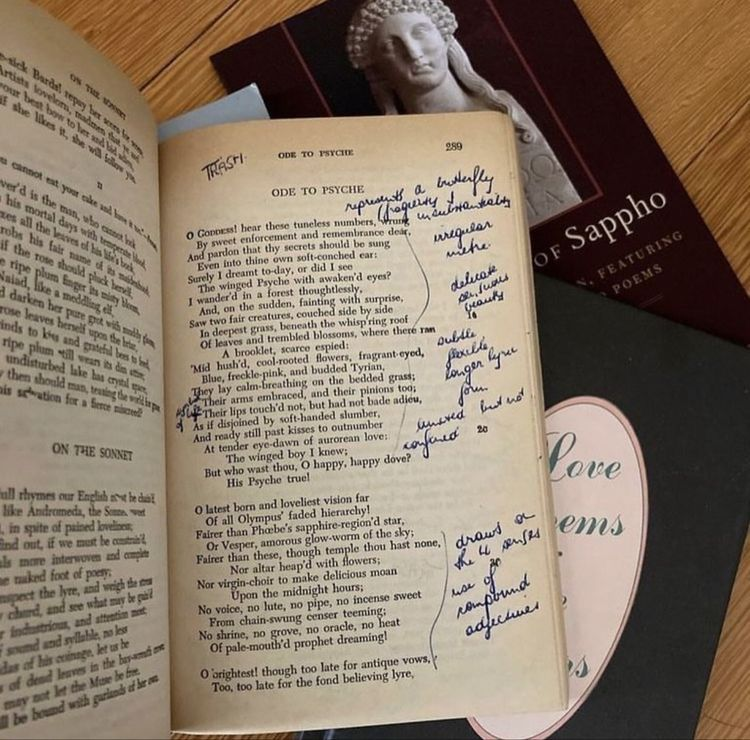 ON THE SONNET
-sick Bards! repay her scorn for scorn,
Artists lovelorn, madmen that ye
your best bow to her and bid adieu,
if she likes it, she will follow you.
II
cannot eat your cake and have it too.
ver'd is the man, who cannot look
his mortal days with temperate blood,
xes all the leaves of his life's book,
robs his fair name of its maidenhood,
if the rose should pluck herself,
ripe plum finger its misty bloom,
Naiad, like a meddling elf,
d darken her pure grot with muddy gloom,
rose leaves herself upon the briar,
inds to kiss and grateful bees to feed,
ripe plum still wears its dim attire,
undisturbed lake has crystal space,
then should man, teasing the world for grace,
his salvation for a fierce miscreed?
ON THE SONNET
ull rhymes our English must be chain'd,
like Andromeda, the Sonnet sweet
, in spite of pained loveliness;
find out, if we must be constrain'd,
ls more interwoven and complete
e naked foot of poesy;
nspect the lyre, and weigh the stress
chord, and see what may be gain'd
r industrious, and attention meet:
f sound and syllable, no less
das of his coinage, let us be
s of dead leaves in the bay-wreath crown
may not let the Muse be free,
ll be bound with garlands of her own.
TRASH.
ODE TO PSYCHE
289
ODE TO PSYCHE
represents a butterfly
(fragility &
insubstantiability
O GODDESS! hear these tuneless numbers, wrung
By sweet enforcement and remembrance dear,
And pardon that thy secrets should be sung
Even into thine own soft-conched ear:
Surely I dreamt to-day, or did I see
The winged Psyche with awaken'd eyes?
I wander'd in a forest thoughtlessly,
And, on the sudden, fainting with surprise,
Saw two fair creatures, couched side by side
In deepest grass, beneath the whisp'ring roof
Of leaves and trembled blossoms, where there ran
A brooklet, scarce espied:
'Mid hush'd, cool-rooted flowers, fragrant-eyed,
Blue, freckle-pink, and budded Tyrian,
They lay calm-breathing on the bedded grass;
Their arms embraced, and their pinions too;
Their lips touch'd not, but had not bade adieu,
As if disjoined by soft-handed slumber,
And ready still past kisses to outnumber
At tender eye-dawn of aurorean love:
The winged boy I knew;
But who wast thou, O happy, happy dove?
His Psyche true!
irregular
metre.
delicate
sensuous
beauty
10
subtle
flexible
longer lyric
form
unused but not
confused
20
O latest born and loveliest vision far
Of all Olympus' faded hierarchy!
Fairer than Phœbe's sapphire-region'd star,
Or Vesper, amorous glow-worm of the sky;
Fairer than these, though temple thou hast none,
Nor altar heap'd with flowers;
Nor virgin-choir to make delicious moan
Upon the midnight hours;
No voice, no lute, no pipe, no incense sweet
From chain-swung censer teeming;
No shrine, no grove, no oracle, no heat
Of pale-mouth'd prophet dreaming!
draws on
the 4 senses
30
use of
compound
adjectives
O brightest! though too late for antique vows,
Too, too late for the fond believing lyre,
OF Sappho
N, FEATURING
POEMS
Love
ems